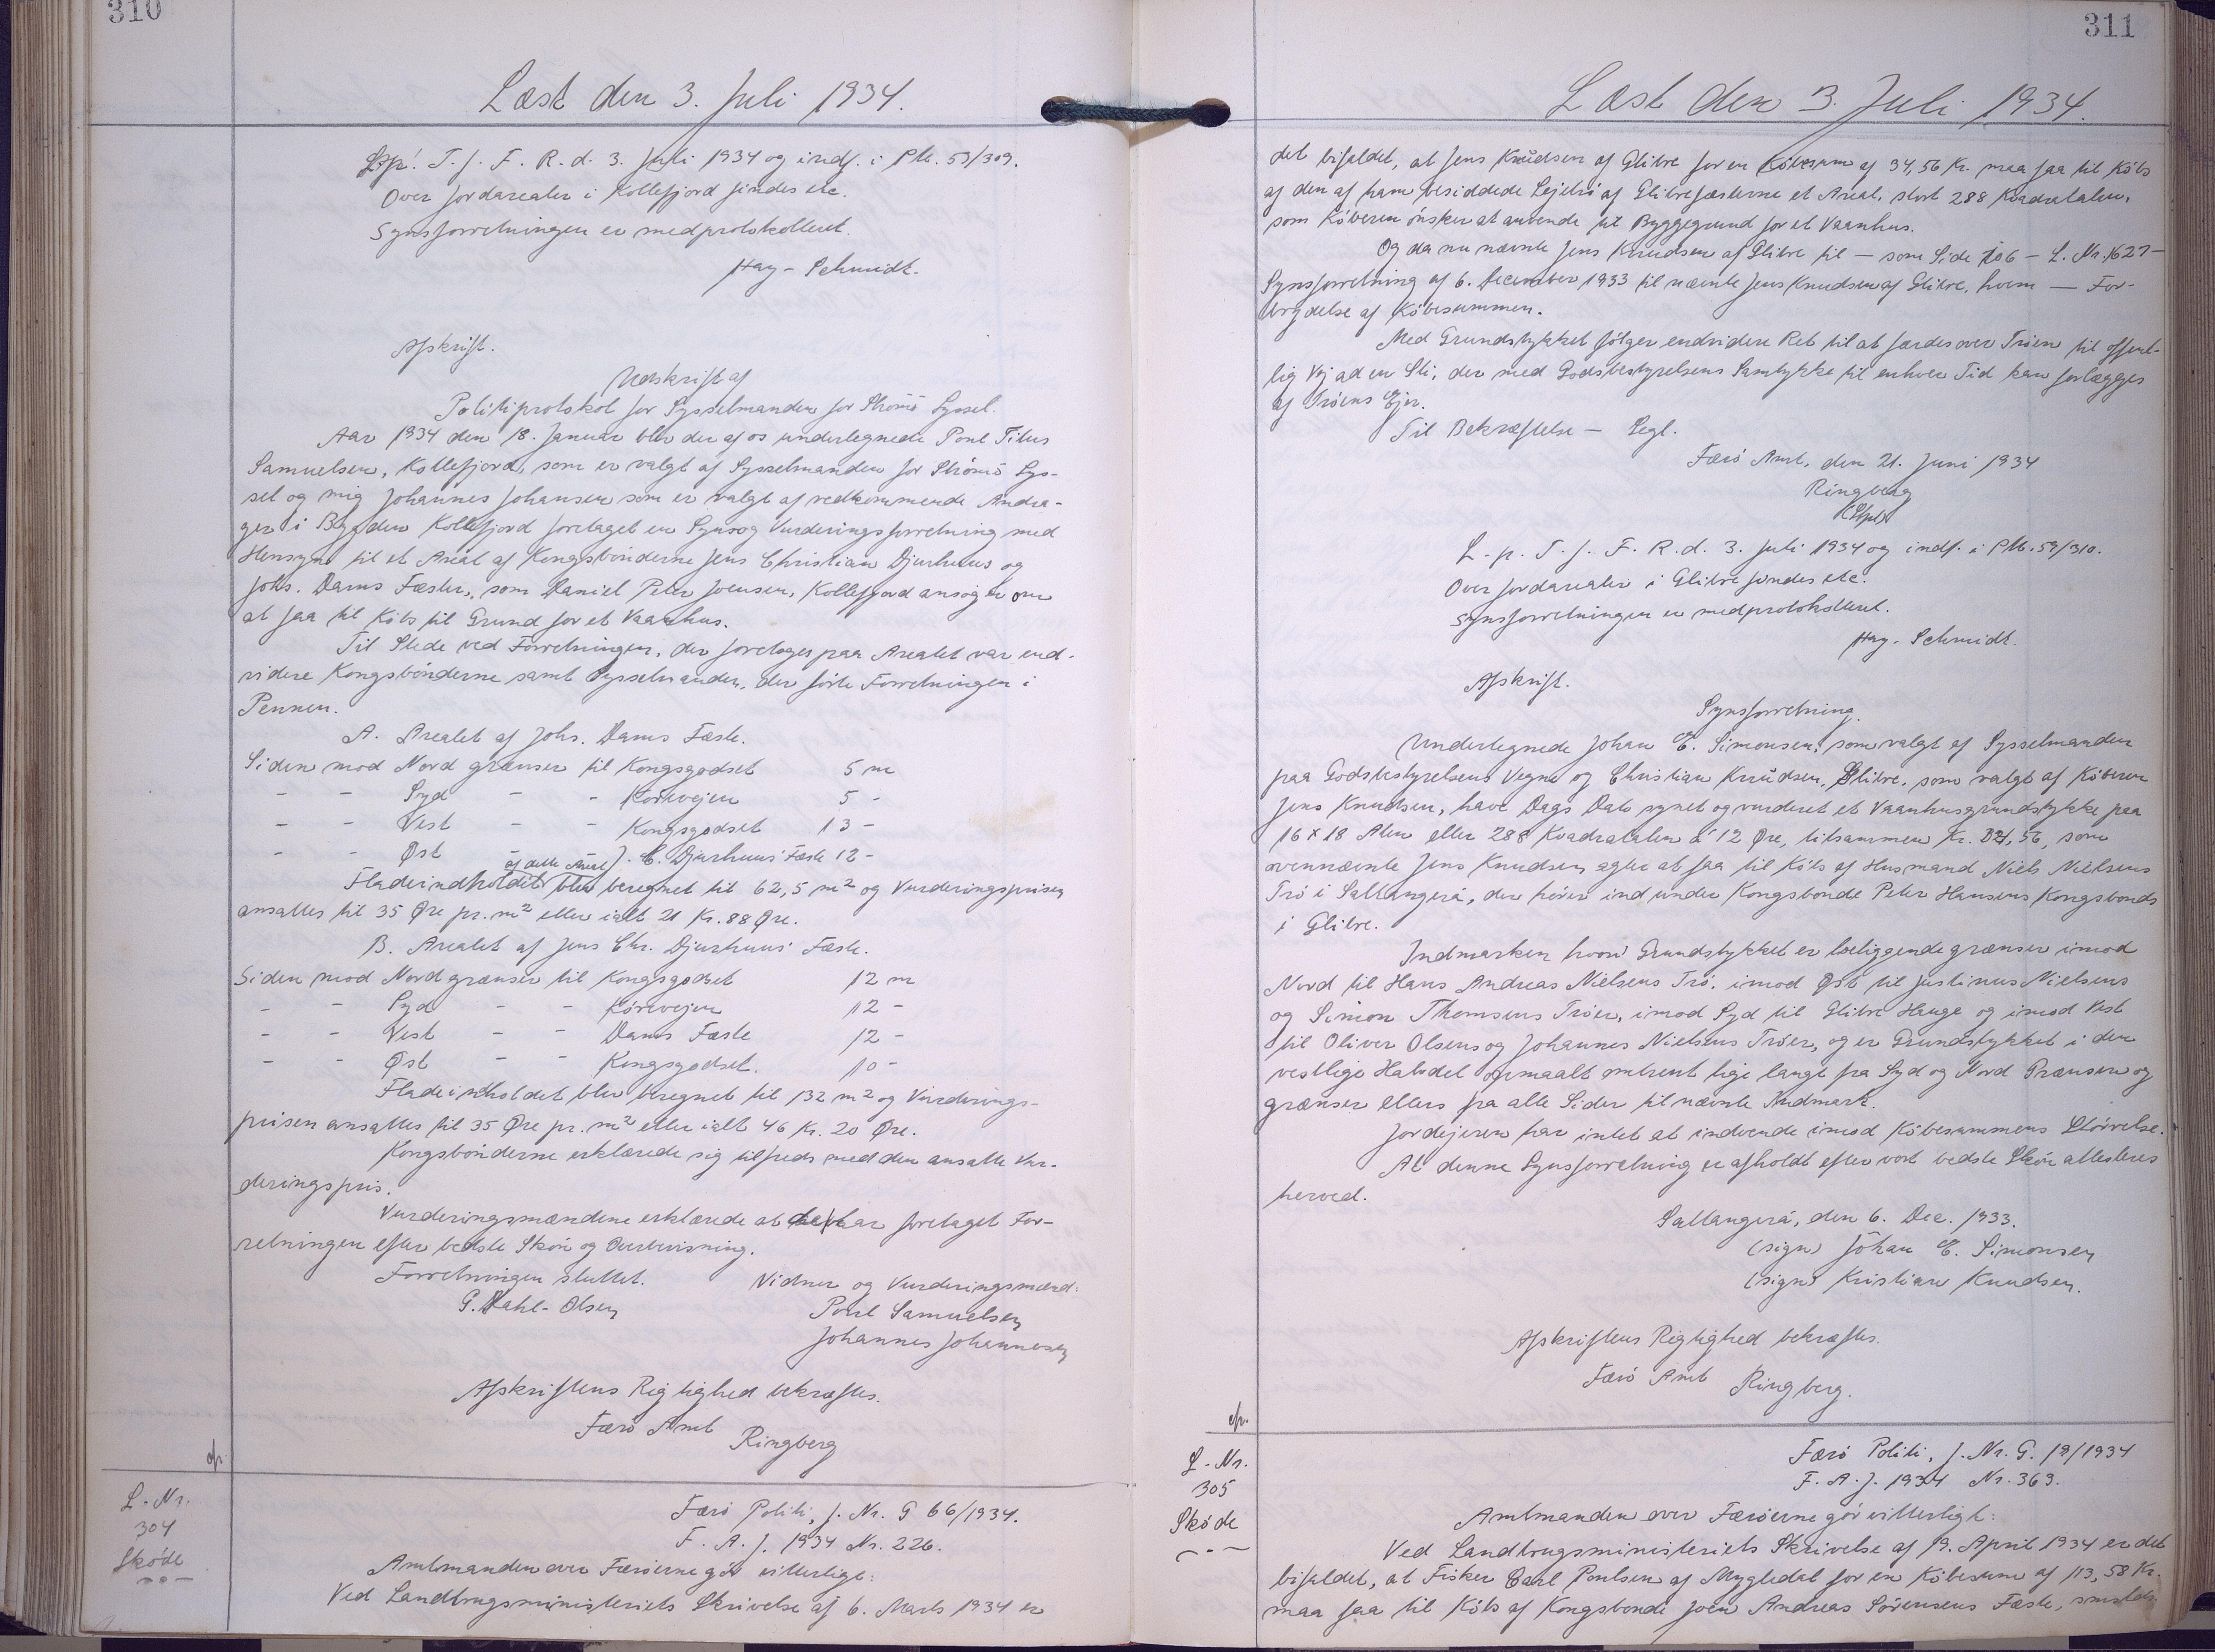 310
Læst den 3. Juli 1934.
L. p. T. f. F. R. d. 3. Juli 1934 og indf. i PM. 53/309.
Over Jordarealer i Kollefjord findes etc.
Synsforretningen er medprotokolleret.
Hay-Schmidt.
Afskrift.
Udskrift af
Politiprotokol for Sysselmanden for Strømø Syssel.
Aar 1934 den 18. Januar blev der af os undertegnede Poul Titus
Samuelsen, Kollefjord, som er valgt af Sysselmanden for Strømø Sys-
sel og mig Johannes Johansen som er valgt af vedkommende Andra-
ger i Bygden Kollefjord foretaget en Syns og Vurderingsforretning med
Hensyn til et Areal af Kongsbønderne Jens Christian Djurhuus og
Johs. Dams Fæster, som Daniel Peter Joensen, Kollefjord ansøgte om
at faa til Købs til Grund for et Vaanhus.
Til Stede ved Forretningen, der foretoges paa Arealet var end-
videre Kongsbønderne samt Sysselmanden, der førte Forretningen i
Pennen.
A. Arealet af Johs. Dams Fæste.
Siden mod Nord grænser til Kongsgodset 5 m
- - Syd - - Kørevejen 5 -
- - Vest - - Kongsgodset 13 -
- - Øst J. C. Djurhuus' Fæste 12 -
Fladeindholdet af dette Areal blev beregnet til 62,5 m² og Vurderingsprisen
ansattes til 35 Øre pr. m² eller ialt 21 Kr. 88 Øre.
B. Arealet af Jens Chr. Djurhuus' Fæste.
Siden mod Nord grænser til Kongsgodset 12 m
- - Syd - - Kørevejen 12 -
- - Vest - - Dams Fæste 12 -
- - Øst - - Kongsgodset. 10 -
Fladeindholdet blev beregnet til 132 m² og Vurderings-
prisen ansattes til 35 Øre pr. m² eller ialt 46 Kr. 20 Øre.
Kongsbønderne erklærede sig tilfreds med den ansatte Vur-
deringspris.
Vurderingsmændene erklærede at de har foretaget For-
retningen efter bedste Skøn og Overbevisning.
Forretningen sluttet. Vidner og Vurderingsmænd:
G. Dahl-Olsen Poul Samuelsen
Johannes Johannesen
Afskriftens Rigtighed bekræftes.
Færø Amt
Ringberg
L. Nr.
304
Skøde
Færø Politi, J. Nr. G 66/1934.
F. A. J. 1934 Nr. 226.
Amtmanden over Færøerne gør vitterligt:
Ved Landbrugsministeriets Skrivelse af 6. Marts 1934 er
311
Læst den 3. Juli 1934.
det bifaldet, at Jens Knudsen af Glibre for en Købesum af 34,56 Kr. maa faa til Købs
af den af ham besiddede Lejetrø af Glibrefæsterne et Areal, stort 288 Kvadratalen,
som Køberen ønsker at anvende til Byggegrund for et Vaanhus.
Og da nu nævnte Jens Knudsen af Glibre til — som Side 106 — L. Nr. 1627 —
Synsforretning af 6. December 1933 til nævnte Jens Knudsen af Glibre, hvem — For-
brydelse af Købesummen.
Med Grundstykket følger endvidere Ret til at færdes over Trøen til offent-
lig Vej ad en Sti, der med Godsbestyrelsens Samtykke til enhver Tid kan forlægges
af Trøens Ejer.
Til Bekræftelse — Segl.
Færø Amt, den 21. Juni 1934
Ringberg
(Stpl)
L. p. T. f. F. R. d. 3. Juli 1934 og indf. i PM. 53/310.
Over Jordarealer i Glibre findes etc.
Synsforretningen er medprotokolleret.
Hay-Schmidt.
Afskrift.
Synsforretning.
Undertegnede Johan E. Simonsen, som valgt af Sysselmanden
paa Godsbestyrelsens Vegne og Christian Knudsen, Glibre, som valgt af Køberen
Jens Knudsen, have Dags Dato synet og vurderet et Vaanhusgrundstykke paa
16 x 18 Alen eller 288 Kvadratalen à 12 Øre, tilsammen Kr. 34,56, som
ovennævnte Jens Knudsen agter at faa til Købs af Husmand Niels Nielsens
Trø i Saltangerá, der hører ind under Kongsbonde Peter Hansens Kongsbonds
i Glibre.
Indmarken hvori Grundstykket er beliggende grænser imod
Nord til Hans Andreas Nielsens Trø, imod Øst til Justinus Nielsens
og Simon Thomsens Trøer, imod Syd til Glibre Hauge og imod Vest
til Oliver Olsens og Johannes Nielsens Trøer, og er Grundstykket i den
vestlige Halvdel opmaalt omtrent lige langt fra Syd og Nord Grænsen og
grænser ellers fra alle Sider til nævnte Indmark.
Jordejeren har intet at indvende imod Købesummens Størrelse.
At denne Synsforretning er afholdt efter vort bedste Skøn attesteres
herved.
Saltangerá, den 6. Dec. 1933.
(sign) Johan E. Simonsen
(sign) Kristian Knudsen.
Afskriftens Rigtighed bekræftes.
Færø Amt Ringberg.
L. Nr.
305
Skøde
Færø Politi, J. Nr. G. 19/1934
F. A. J. 1934 Nr. 363.
Amtmanden over Færøerne gør vitterligt:
Ved Landbrugsministeriets Skrivelse af 19. April 1934 er det
bifaldet, at Fisker Carl Poulsen af Mygledal for en Købesum af 113,58 Kr.
maa faa til Købs af Kongsbonde Joen Andreas Sørensens Fæste, smstds.